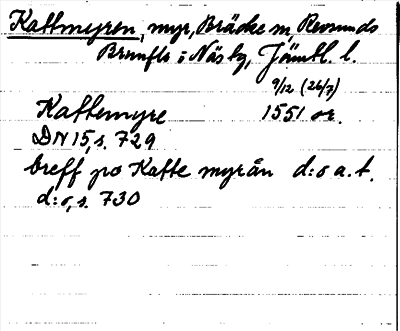 Kattmyren, myr, Bräcke sn, Revsunds
Brunflo i Näs by, Jämtl. l.
9/12 (26/7)
Kattemyre 1551 or.
DN 15, s. 729
breff po Katte myrån d:o a. t.
d:o, s. 730